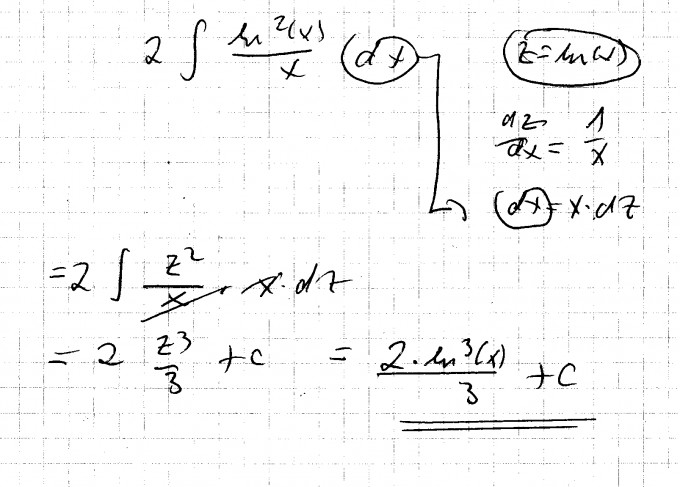 2 ∫ ln²(x)/x dx z = ln(x)
dz/dx = 1/x
dx = x·dz
= 2 ∫ z²/x · x·dz
= 2 z³/3 + c = 2·ln³(x)/3 + c